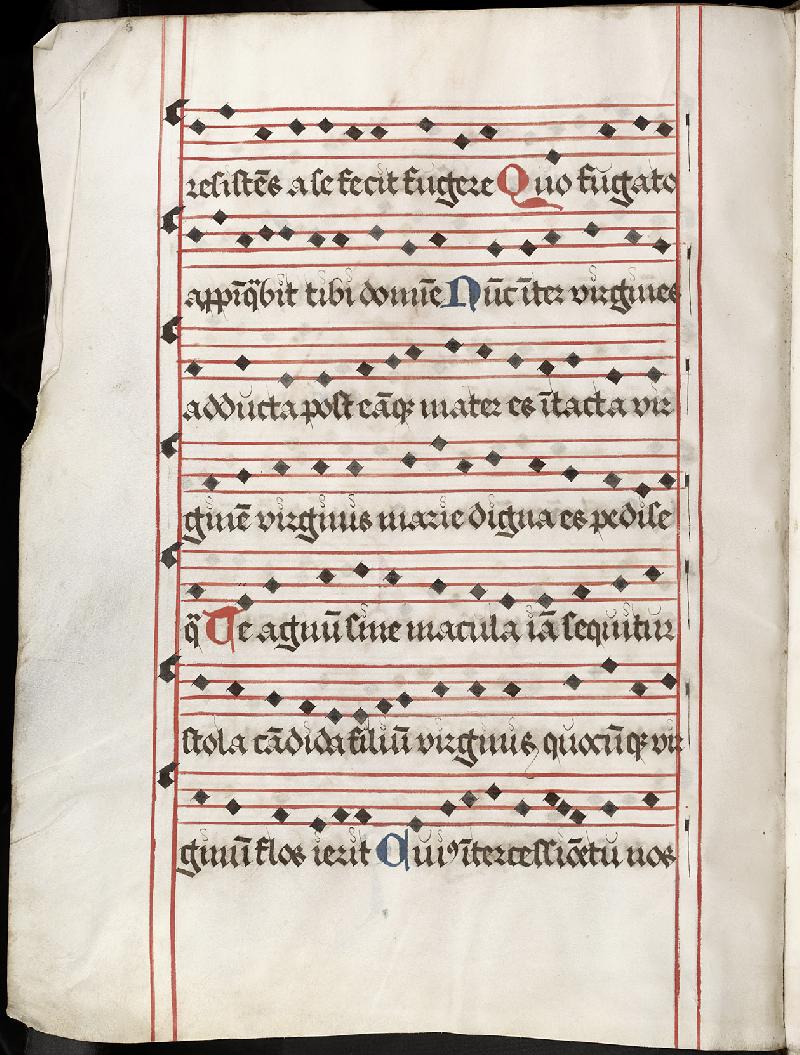 resistēs a se fecit fugere Quo fugato
appīq̄bit tibi domiē Nūc īter virgines
adducta post eāqꝫ mater es ītacta vir
ginē virginis marie digna es pedise
q̄ Te agnū sine macula iā sequitur
stola cādida filiū virginis quocūqꝫ vir
ginū flos ierit Cuiꝰ ītercessiōe tu nos